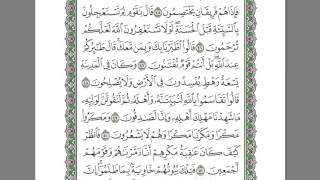 فَإِذَا هُمْ فَرِيقَانِ يَخْتَصِمُونَ ۝ قَالَ يَٰقَوْمِ لِمَ تَسْتَعْجِلُونَ
بِٱلسَّيِّئَةِ قَبْلَ ٱلْحَسَنَةِ ۖ لَوْلَا تَسْتَغْفِرُونَ ٱللَّهَ لَعَلَّكُمْ
تُرْحَمُونَ ۝ قَالُوا۟ ٱطَّيَّرْنَا بِكَ وَبِمَن مَّعَكَ ۚ قَالَ طَٰٓئِرُكُمْ
عِندَ ٱللَّهِ ۖ بَلْ أَنتُمْ قَوْمٌ تُفْتَنُونَ ۝ وَكَانَ فِى ٱلْمَدِينَةِ
تِسْعَةُ رَهْطٍ يُفْسِدُونَ فِى ٱلْأَرْضِ وَلَا يُصْلِحُونَ ۝
قَالُوا۟ تَقَاسَمُوا۟ بِٱللَّهِ لَنُبَيِّتَنَّهُۥ وَأَهْلَهُۥ ثُمَّ لَنَقُولَنَّ لِوَلِيِّهِۦ
مَا شَهِدْنَا مَهْلِكَ أَهْلِهِۦ وَإِنَّا لَصَٰدِقُونَ ۝ وَمَكَرُوا۟
مَكْرًا وَمَكَرْنَا مَكْرًا وَهُمْ لَا يَشْعُرُونَ ۝ فَٱنظُرْ
كَيْفَ كَانَ عَٰقِبَةُ مَكْرِهِمْ أَنَّا دَمَّرْنَٰهُمْ وَقَوْمَهُمْ
أَجْمَعِينَ ۝ فَتِلْكَ بُيُوتُهُمْ خَاوِيَةًۢ بِمَا ظَلَمُوٓا۟ ۗ إِنَّ